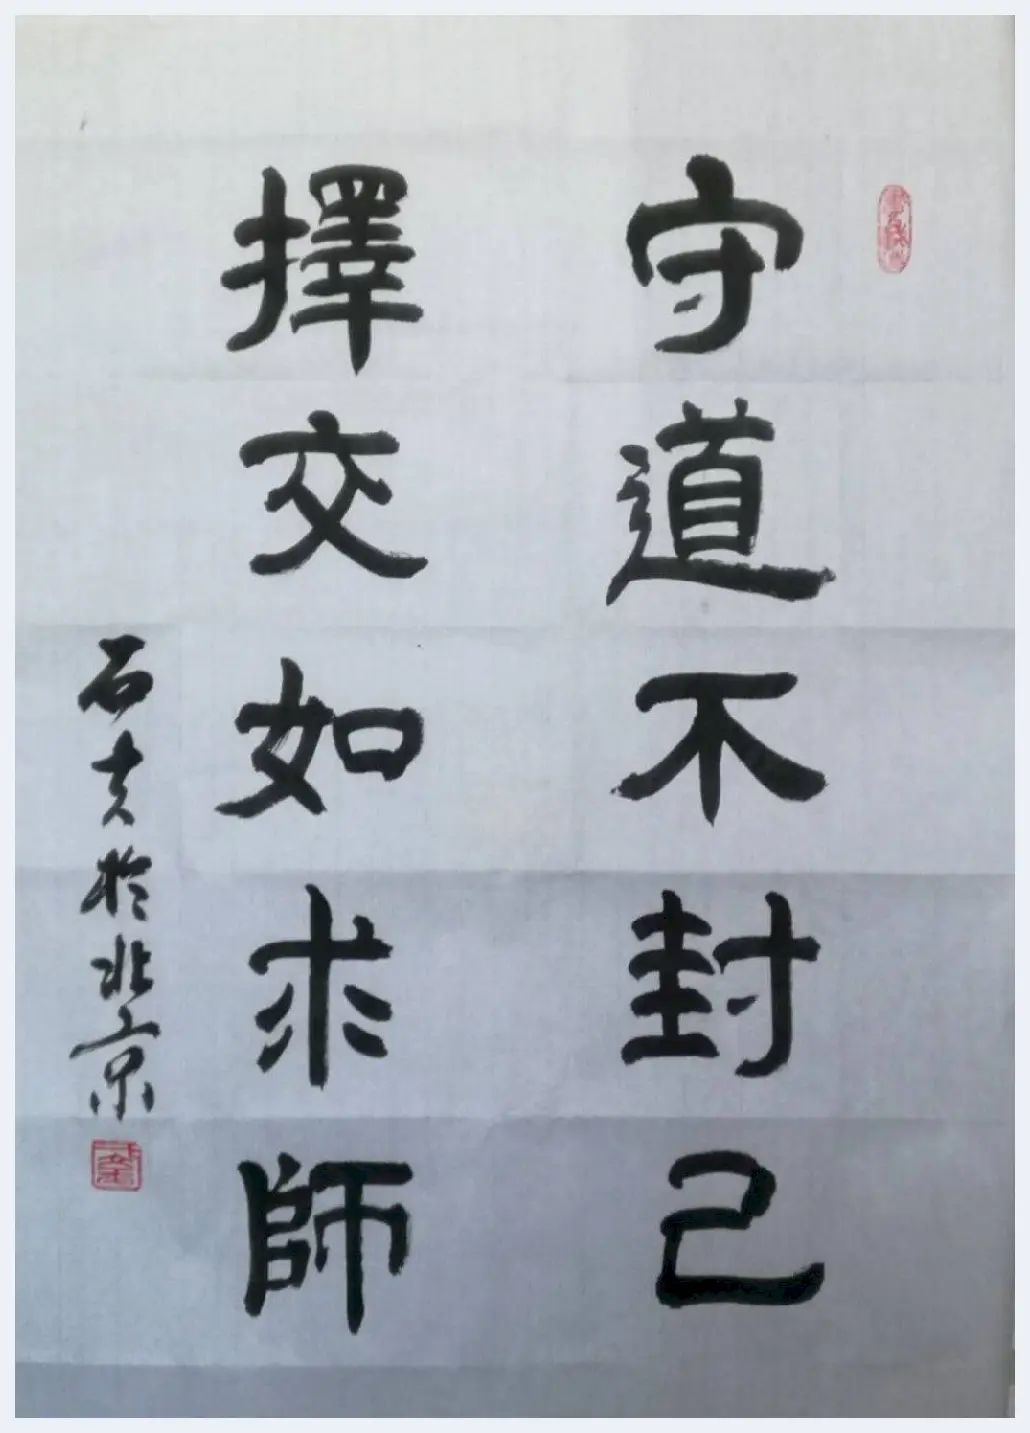 守道不封己
擇交如求師
石克於北京